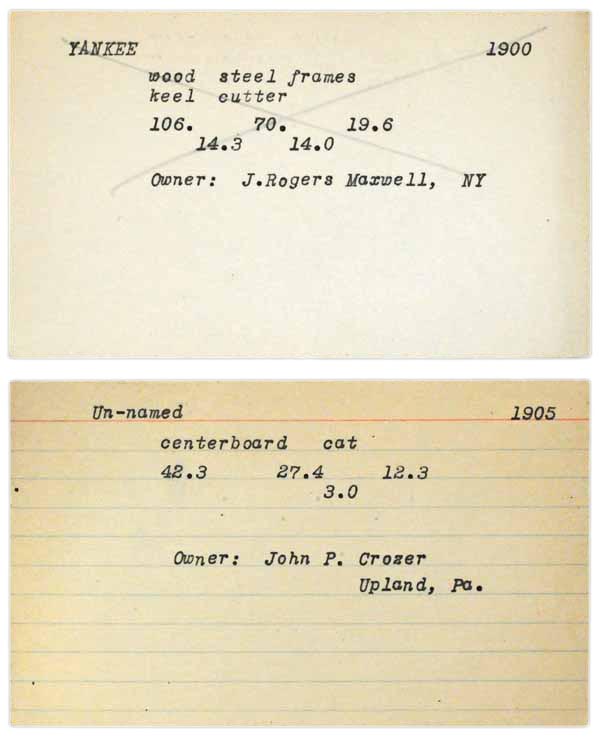 YANKEE 1900
wood steel frames
keel cutter
106. 70. 19.6
14.3 14.0
Owner: J.Rogers Maxwell, NY
Un-named 1905
centerboard cat
42.3 27.4 12.3
3.0
Owner: John P. Crozer
Upland, Pa.